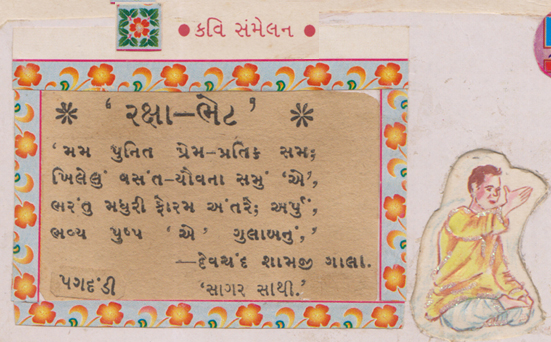 • કવિ સંમેલન •
* ‘ રક્ષા—ભેટ ’ *
‘ મમ પુનિત પ્રેમ-પ્રતિક સમ;
ખિલેલું વસંત-યૌવના સમું ‘એ’,
ભરંતુ મધુરી ફોરમ અંતરે; અર્પું,
ભવ્ય પુષ્પ ‘એ’ ગુલાબનું,”
—દેવચંદ શામજી ગાલા.
પગદંડી ‘સાગર સાથી.’